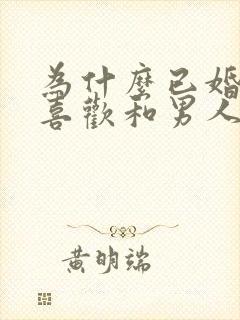 為什麼已婚
喜歡和男人
黃明端